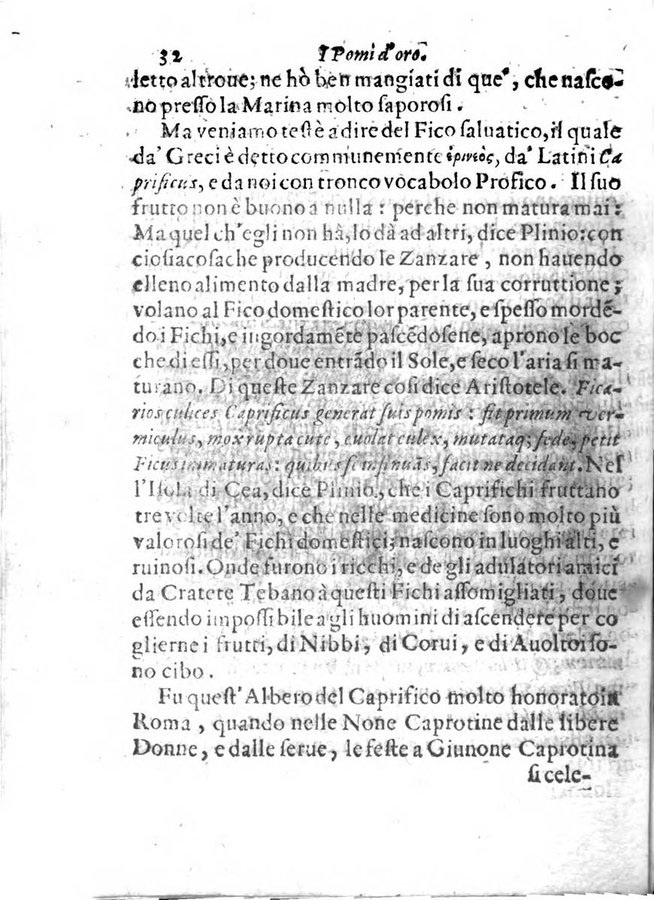 32 I Pomi d'oro.
letto altroue; ne hò ben mangiati di que', che nasco-
no presso la Marina molto saporosi.
Ma veniamo testè a dire del Fico saluatico, il quale
da' Greci è detto communemente ἐρινεὸς, da' Latini Ca
prificus, e da noi con tronco vocabolo Profico. Il suo
frutto non è buono a nulla: perche non matura mai:
Ma quel ch'egli non hà, lo dà ad altri, dice Plinio: con
ciosiacosache producendo le Zanzare, non hauendo
elleno alimento dalla madre, per la sua corruttione;
volano al Fico domestico lor parente, e spesso mordē-
do i Fichi, e ingordamēte pascēdosene, aprono le boc
che di essi, per doue entrādo il Sole, e seco l'aria si ma-
turano. Di queste Zanzare cosi dice Aristotele. Fica-
rios culices Caprificus generat suis pomis: fit primum ver-
miculus, mox rupta cute, euolat culex, mutataq; sede, petit
Ficus immaturas: quibus se insinuās, facit ne decidant. Nel
l'Isola di Cea, dice Plinio, che i Caprifichi fruttano
tre volte l'anno, e che nelle medicine sono molto più
valorosi de' Fichi domestici; nascono in luoghi alti, e
ruinosi. Onde furono i ricchi, e de gli adulatori amici
da Cratete Tebano à questi Fichi assomigliati, doue
essendo impossibile a gli huomini di ascendere per co
glierne i frutti, di Nibbi, di Corui, e di Auoltoi so-
no cibo.
Fu quest'Albero del Caprifico molto honorato in
Roma, quando nelle None Caprotine dalle libere
Donne, e dalle serue, le feste a Giunone Caprotina
si cele-